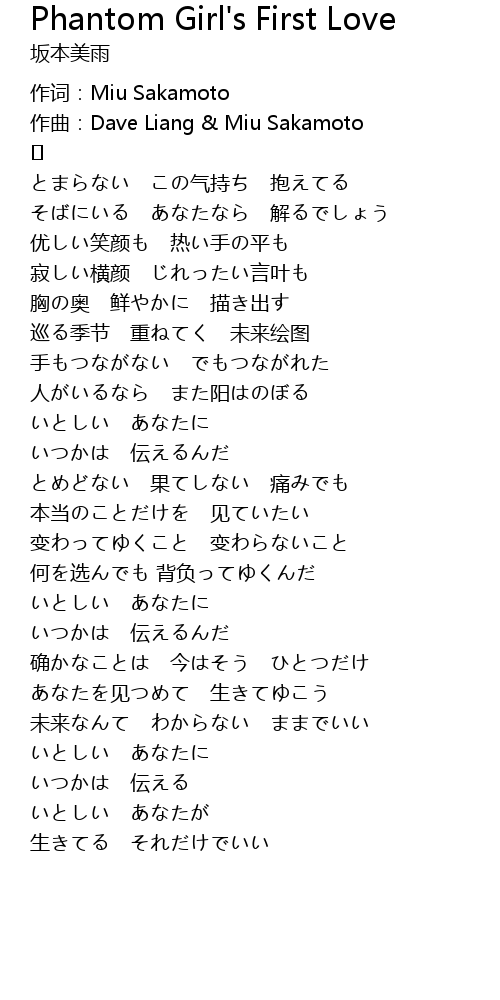 Phantom Girl's First Love
坂本美雨
作词：Miu Sakamoto
作曲：Dave Liang & Miu Sakamoto
[]
とまらない　この气持ち　抱えてる
そばにいる　あなたなら　解るでしょう
优しい笑颜も　热い手の平も
寂しい横颜　じれったい言叶も
胸の奥　鲜やかに　描き出す
巡る季节　重ねてく　未来绘图
手もつながない　でもつながれた
人がいるなら　また阳はのぼる
いとしい　あなたに
いつかは　伝えるんだ
とめどない　果てしない　痛みでも
本当のことだけを　见ていたい
变わってゆくこと　变わらないこと
何を选んでも 背负ってゆくんだ
いとしい　あなたに
いつかは　伝えるんだ
确かなことは　今はそう　ひとつだけ
あなたを见つめて　生きてゆこう
未来なんて　わからない　ままでいい
いとしい　あなたに
いつかは　伝える
いとしい　あなたが
生きてる　それだけでいい